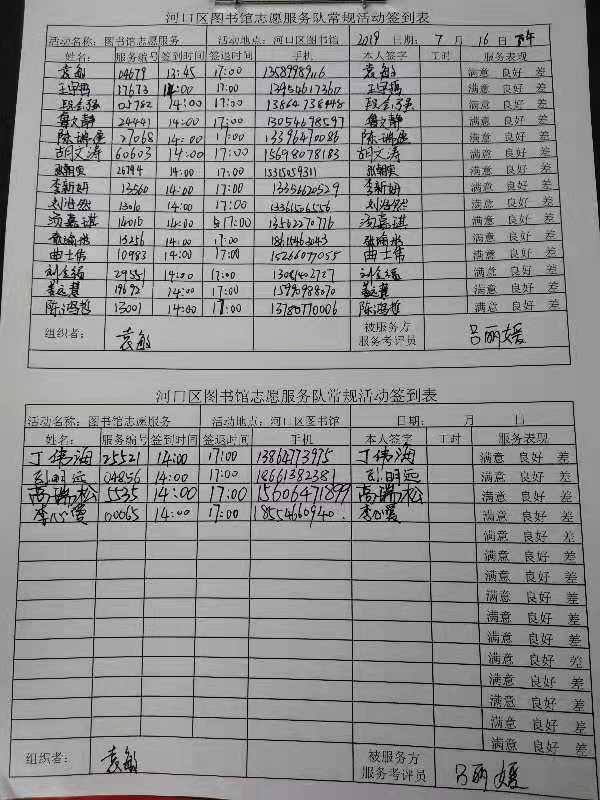 河口区图书馆志愿服务队常规活动签到表
活动名称：图书馆志愿服务 活动地点：河口区图书馆 2019 日期： 7 月 16 日
姓名： 服务编号 签到时间 签退时间 手机 本人签字 工时 服务表现
袁敏 04679 13:45 17:00 袁敏 满意 良好 差
17673 14:00 17:00 满意 良好 差
02782 14:00 17:00 13864738448 满意 良好 差
鲁文静 24441 14:00 17:00 13054698597 鲁文静 满意 良好 差
陈瑞莲 27068 14:00 17:00 13396470086 陈瑞莲 满意 良好 差
胡文涛 60603 14:00 17:00 15698078183 胡文涛 满意 良好 差
26794 14:00 17:00 15315059311 满意 良好 差
李新妍 13560 14:00 17:00 李新妍 满意 良好 差
刘浩然 13010 14:00 17:00 13361506556 刘浩然 满意 良好 差
汤嘉琪 14016 14:00 17:00 13562270776 汤嘉琪 满意 良好 差
13256 14:00 17:00 满意 良好 差
曲士伟 10983 14:00 17:00 15266077055 曲士伟 满意 良好 差
29551 14:00 17:00 满意 良好 差
19692 14:00 17:00 15990988070 满意 良好 差
陈鸿哲 13001 14:00 17:00 13780770006 陈鸿哲 满意 良好 差
组织者： 袁敏 被服务方
服务考评员 吕丽媛
河口区图书馆志愿服务队常规活动签到表
活动名称：图书馆志愿服务 活动地点：河口区图书馆 日期： 月 日
姓名： 服务编号 签到时间 签退时间 手机 本人签字 工时 服务表现
丁伟海 25521 14:00 17:00 13864773975 丁伟海 满意 良好 差
彭明远 04856 14:00 17:00 18661382381 彭明远 满意 良好 差
高瑞松 5535 14:00 17:00 15606471899 高瑞松 满意 良好 差
李心爱 00065 14:00 17:00 18554660940 李心爱 满意 良好 差
满意 良好 差
满意 良好 差
满意 良好 差
满意 良好 差
满意 良好 差
满意 良好 差
满意 良好 差
满意 良好 差
满意 良好 差
满意 良好 差
满意 良好 差
组织者： 袁敏 被服务方
服务考评员 吕丽媛